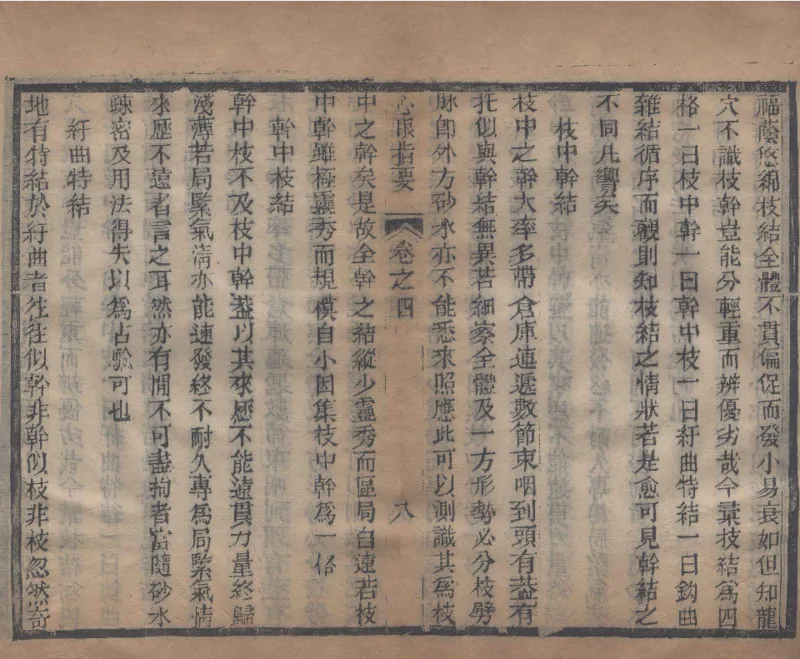 福蔭悠綿枝結全體不貫偏促而發小易衰如但知龍
穴不識枝幹豈能分輕重而辨優劣哉今彙枝結為四
格一曰枝中幹一曰幹中枝一曰紆曲特結一曰鈎曲
雜結循序而觀則知枝結之情狀若是愈可見幹結之
不同凡響矣
枝中幹結
枝中之幹大率多帶倉庫連遞數節束咽到頭有葢有
托似與幹結無異若細察全體及一方形勢必分枝劈
脉即外方砂水亦不能悉來照應此可以測識其為枝
心眼指要 卷之四 八
中之幹矣是故全幹之結縱少靈秀而區局自遠若枝
中幹雖極靈秀而規模自小因集枝中幹為一格
幹中枝結
幹中枝不及枝中幹葢以其來歷不能遠貫力量終歸
淺薄若局緊氣清亦能速發終不耐久專為局緊氣情
來歷不遠者言之耳然亦有間不可盡拘者當隨砂水
疎密及用法得失以為占驗可也
紆曲特結
地有特結於紆曲者往往似幹非幹似枝非枝忽然奇